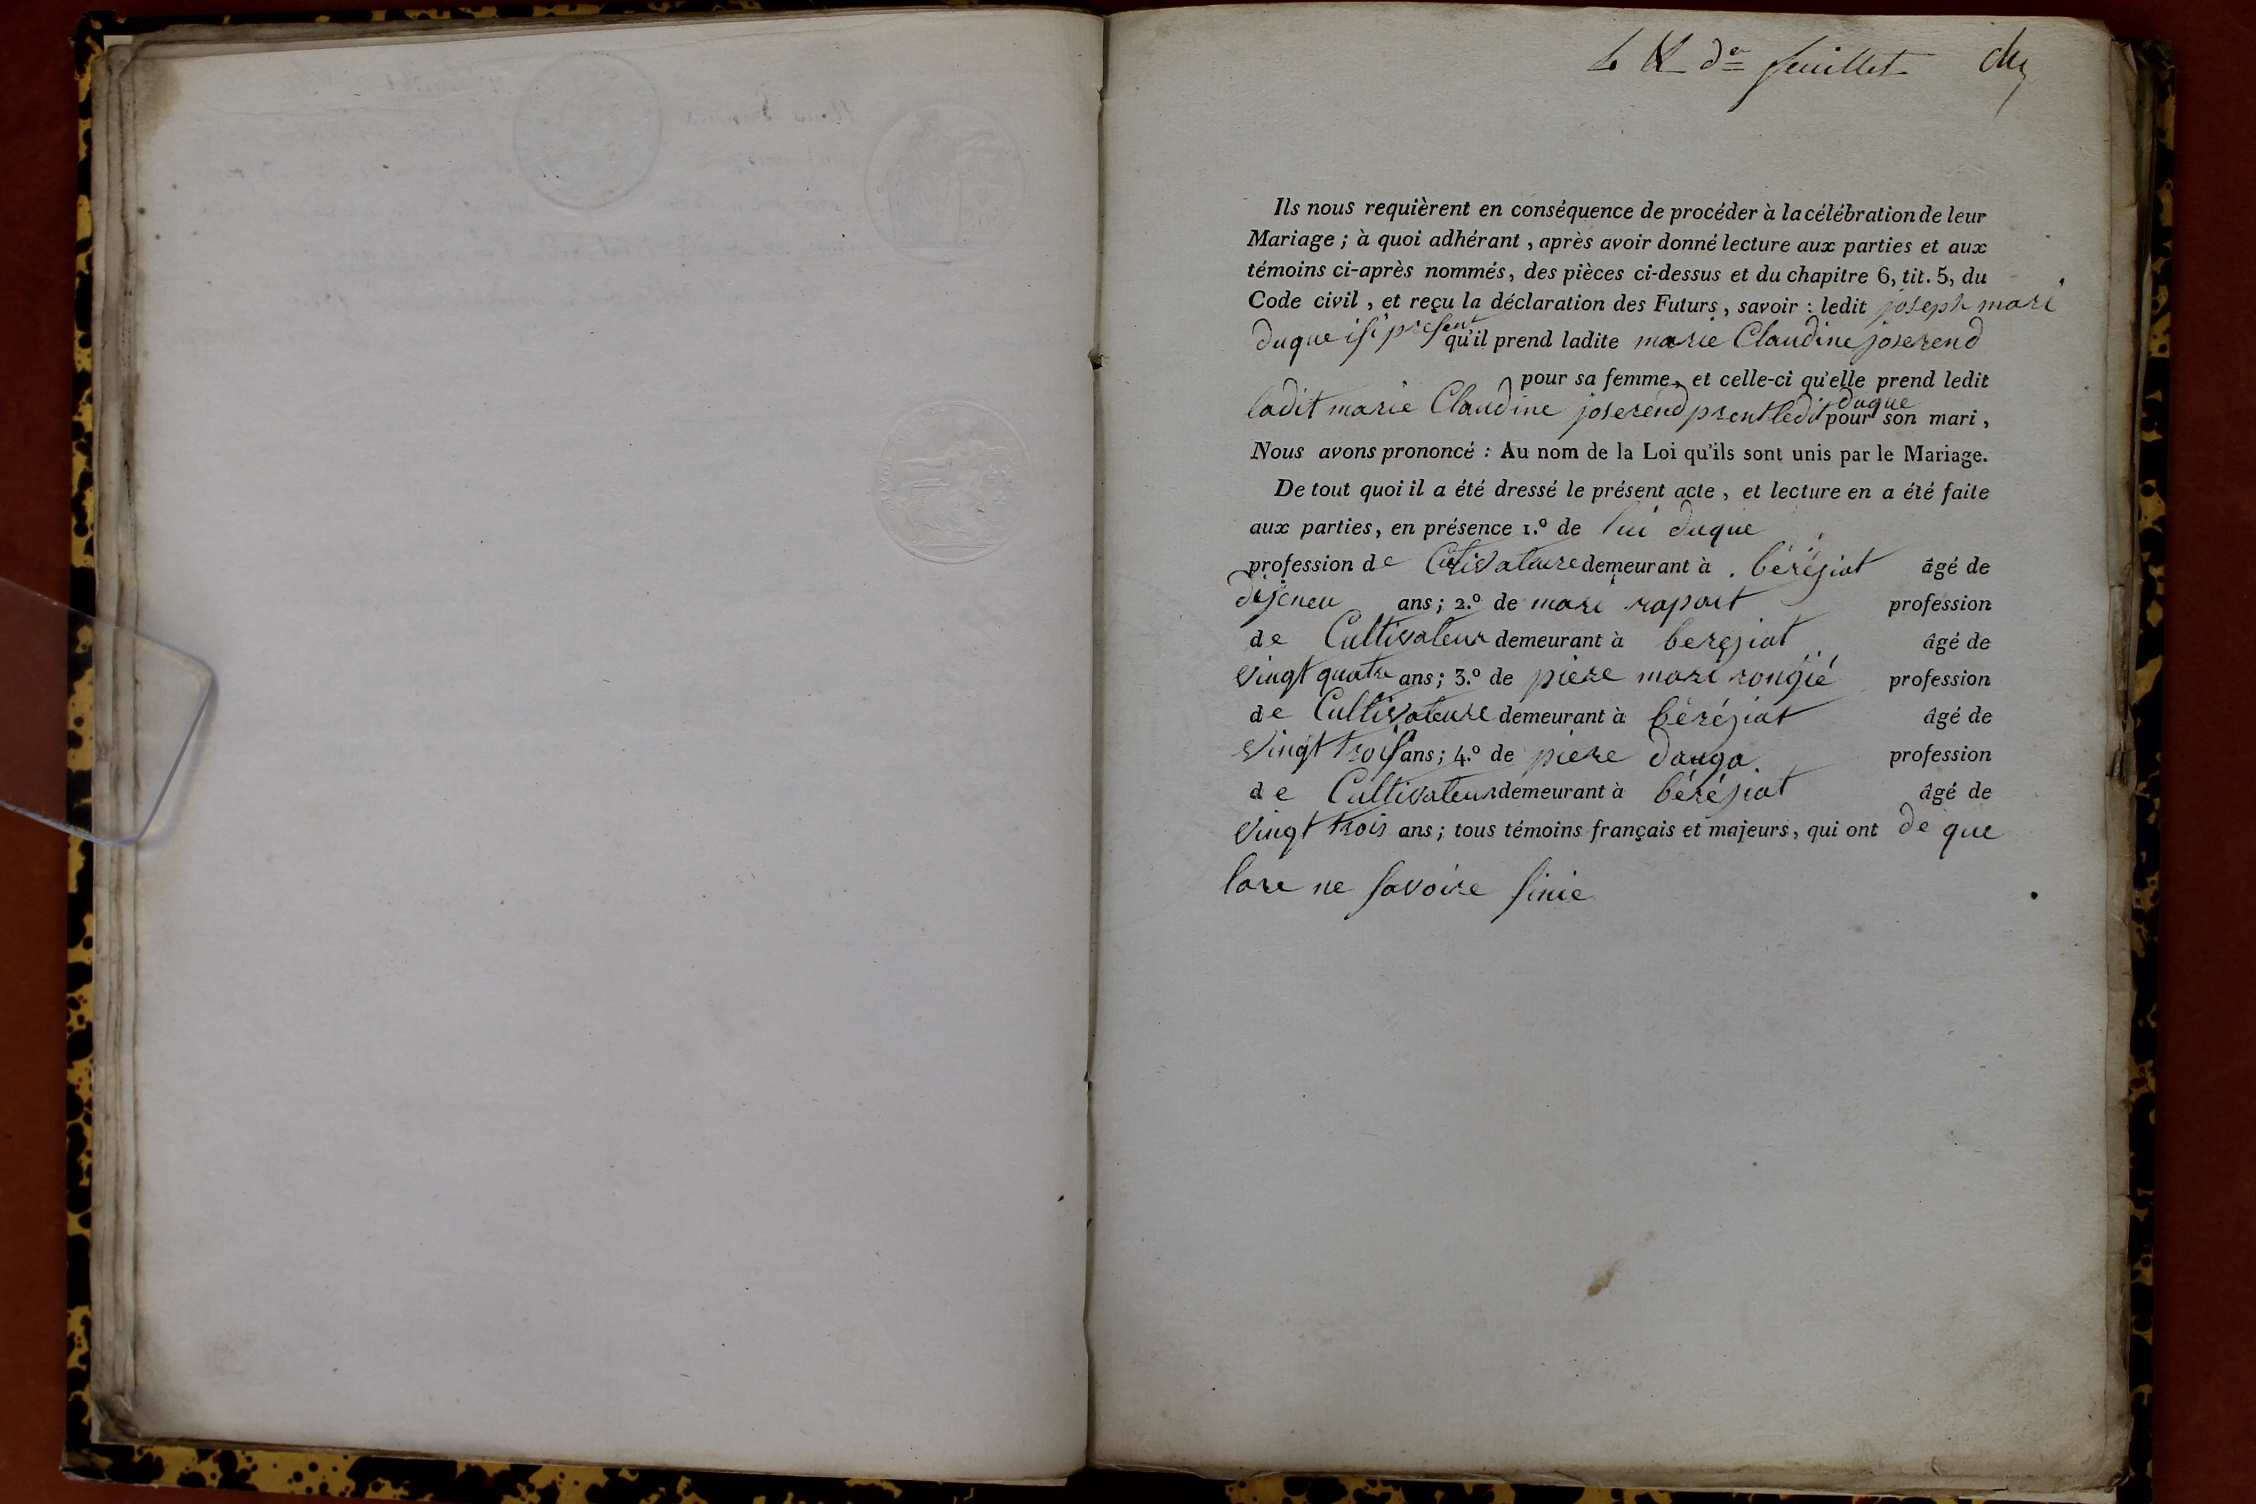 feuillet
Ils nous requièrent en conséquence de procéder à la célébration de leur
Mariage ; à quoi adhérant , après avoir donné lecture aux parties et aux
témoins ci-après nommés, des pièces ci-dessus et du chapitre 6, tit. 5, du
Code civil , et reçu la déclaration des Futurs , savoir : ledit joseph mari
duque isi present qu'il prend ladite marie Claudine joserend
pour sa femme, et celle-ci qu'elle prend ledit
ladit marie Claudine joserend prent ledit duque pour son mari ,
Nous avons prononcé : Au nom de la Loi qu'ils sont unis par le Mariage.
De tout quoi il a été dressé le présent acte , et lecture en a été faite
aux parties, en présence 1.º de lui duque
profession de demeurant à béréziat âgé de
ans ; 2.º de mari raport profession
de Cultivateur demeurant à bereziat âgé de
vingt quatre ans ; 3.º de piere mari rongié profession
de Cultivateure demeurant à béréziat âgé de
vingt trois ans ; 4.º de piere danga profession
de Cultivateur demeurant à béréziat âgé de
vingt trois ans ; tous témoins français et majeurs, qui ont de que
lare ne savoire sinie